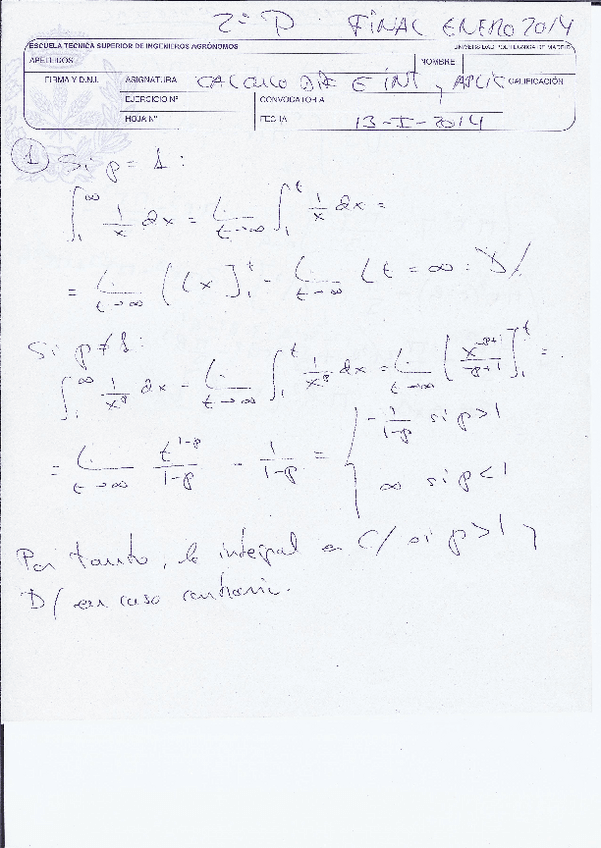 2º P. FINAL ENERO 2014
ESCUELA TECNICA SUPERIOR DE INGENIEROS AGRÓNOMOS
UNIVERSIDAD POLITECNICA DE MADRID
APELLIDOS
NOMBRE
FIRMA Y D.N.I.
ASIGNATURA CALCULO DIF E INT y APLIC
CALIFICACIÓN
EJERCICIO Nº
CONVOCATORIA
HOJA Nº
FECHA 13-I-2014
① Si p = 1:
∫₁^∞ 1/x dx = L_{t→∞} ∫₁^t 1/x dx =
= L_{t→∞} [Lx]₁^t = L_{t→∞} Lt = ∞ : D/
Si p ≠ 1:
∫₁^∞ 1/x^p dx = L_{t→∞} ∫₁^t 1/x^p dx = L_{t→∞} [x^{-p+1}/(-p+1)]₁^t =
= L_{t→∞} t^{1-p}/(1-p) - 1/(1-p) = { -1/(1-p) si p>1
∞ si p<1
Por tanto, la integral es C/ si p>1 y
D/ en caso contrario.